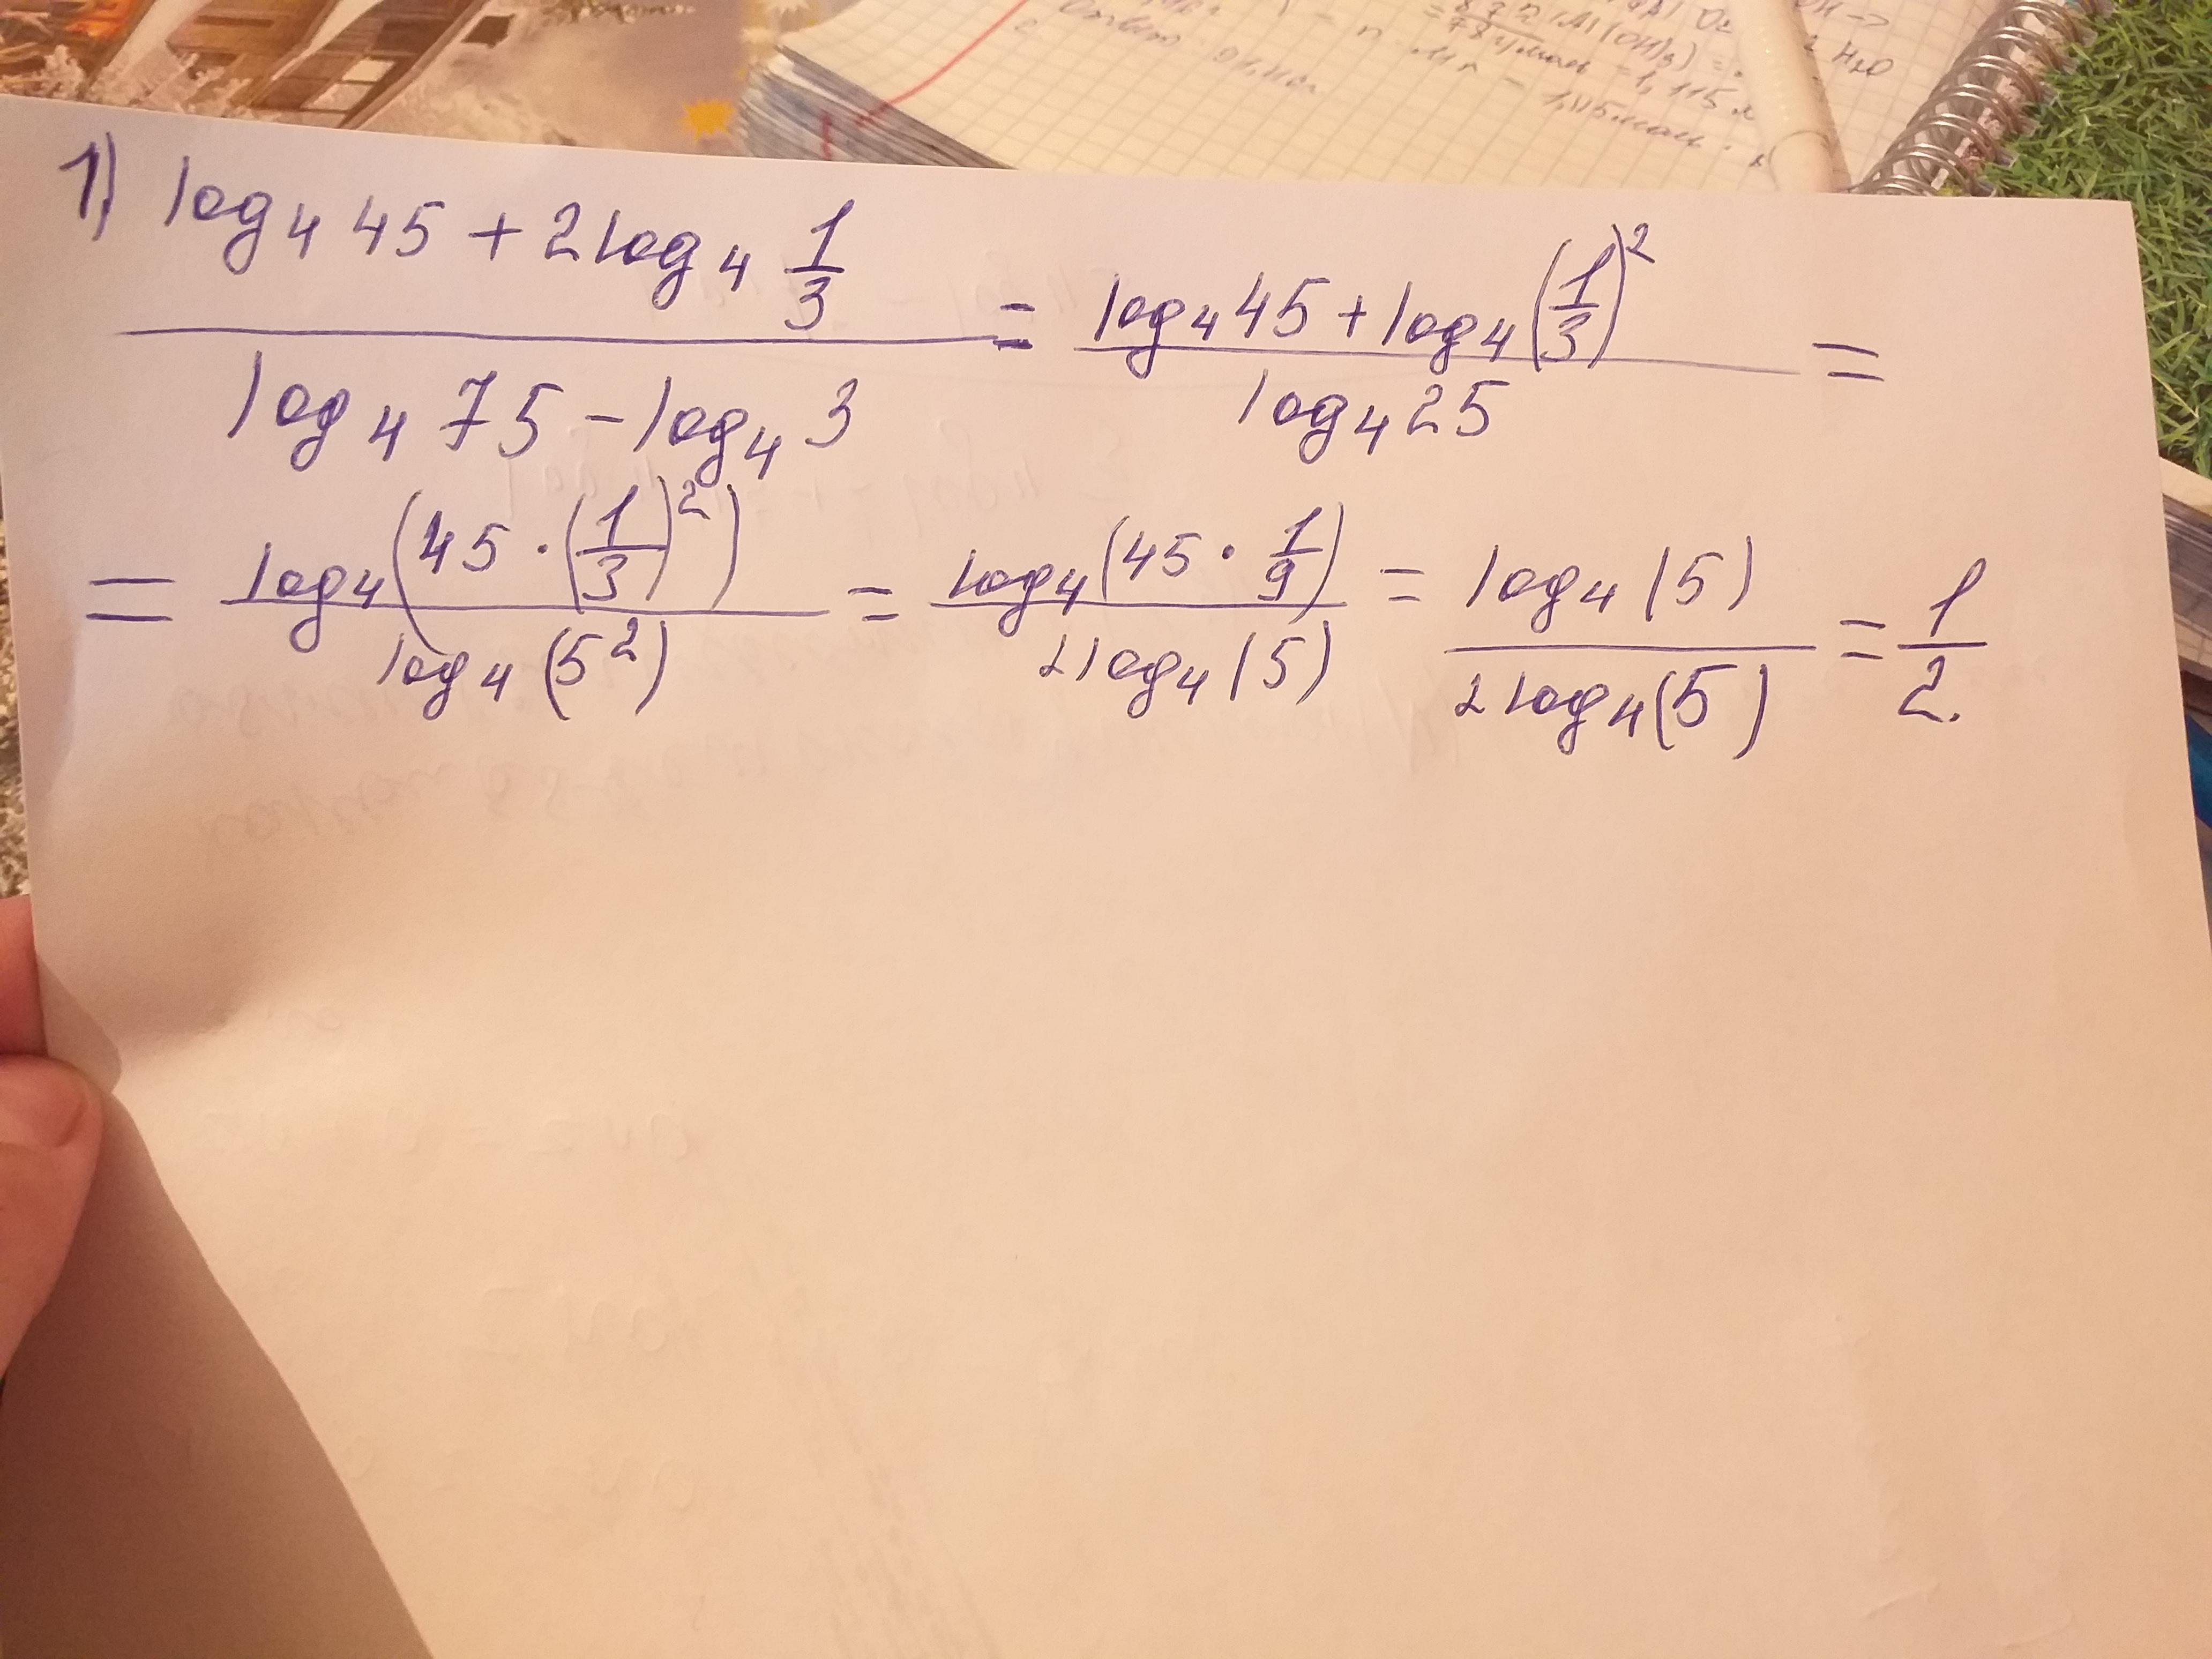 OH->
= 1,115
1) log₄ 45 + 2log₄ 1/3 / log₄ 75 - log₄ 3 = log₄ 45 + log₄ (1/3)² / log₄ 25 =
= log₄ (45 · (1/3)²) / log₄ (5²) = log₄ (45 · 1/9) / 2log₄ (5) = log₄ (5) / 2log₄ (5) = 1/2.